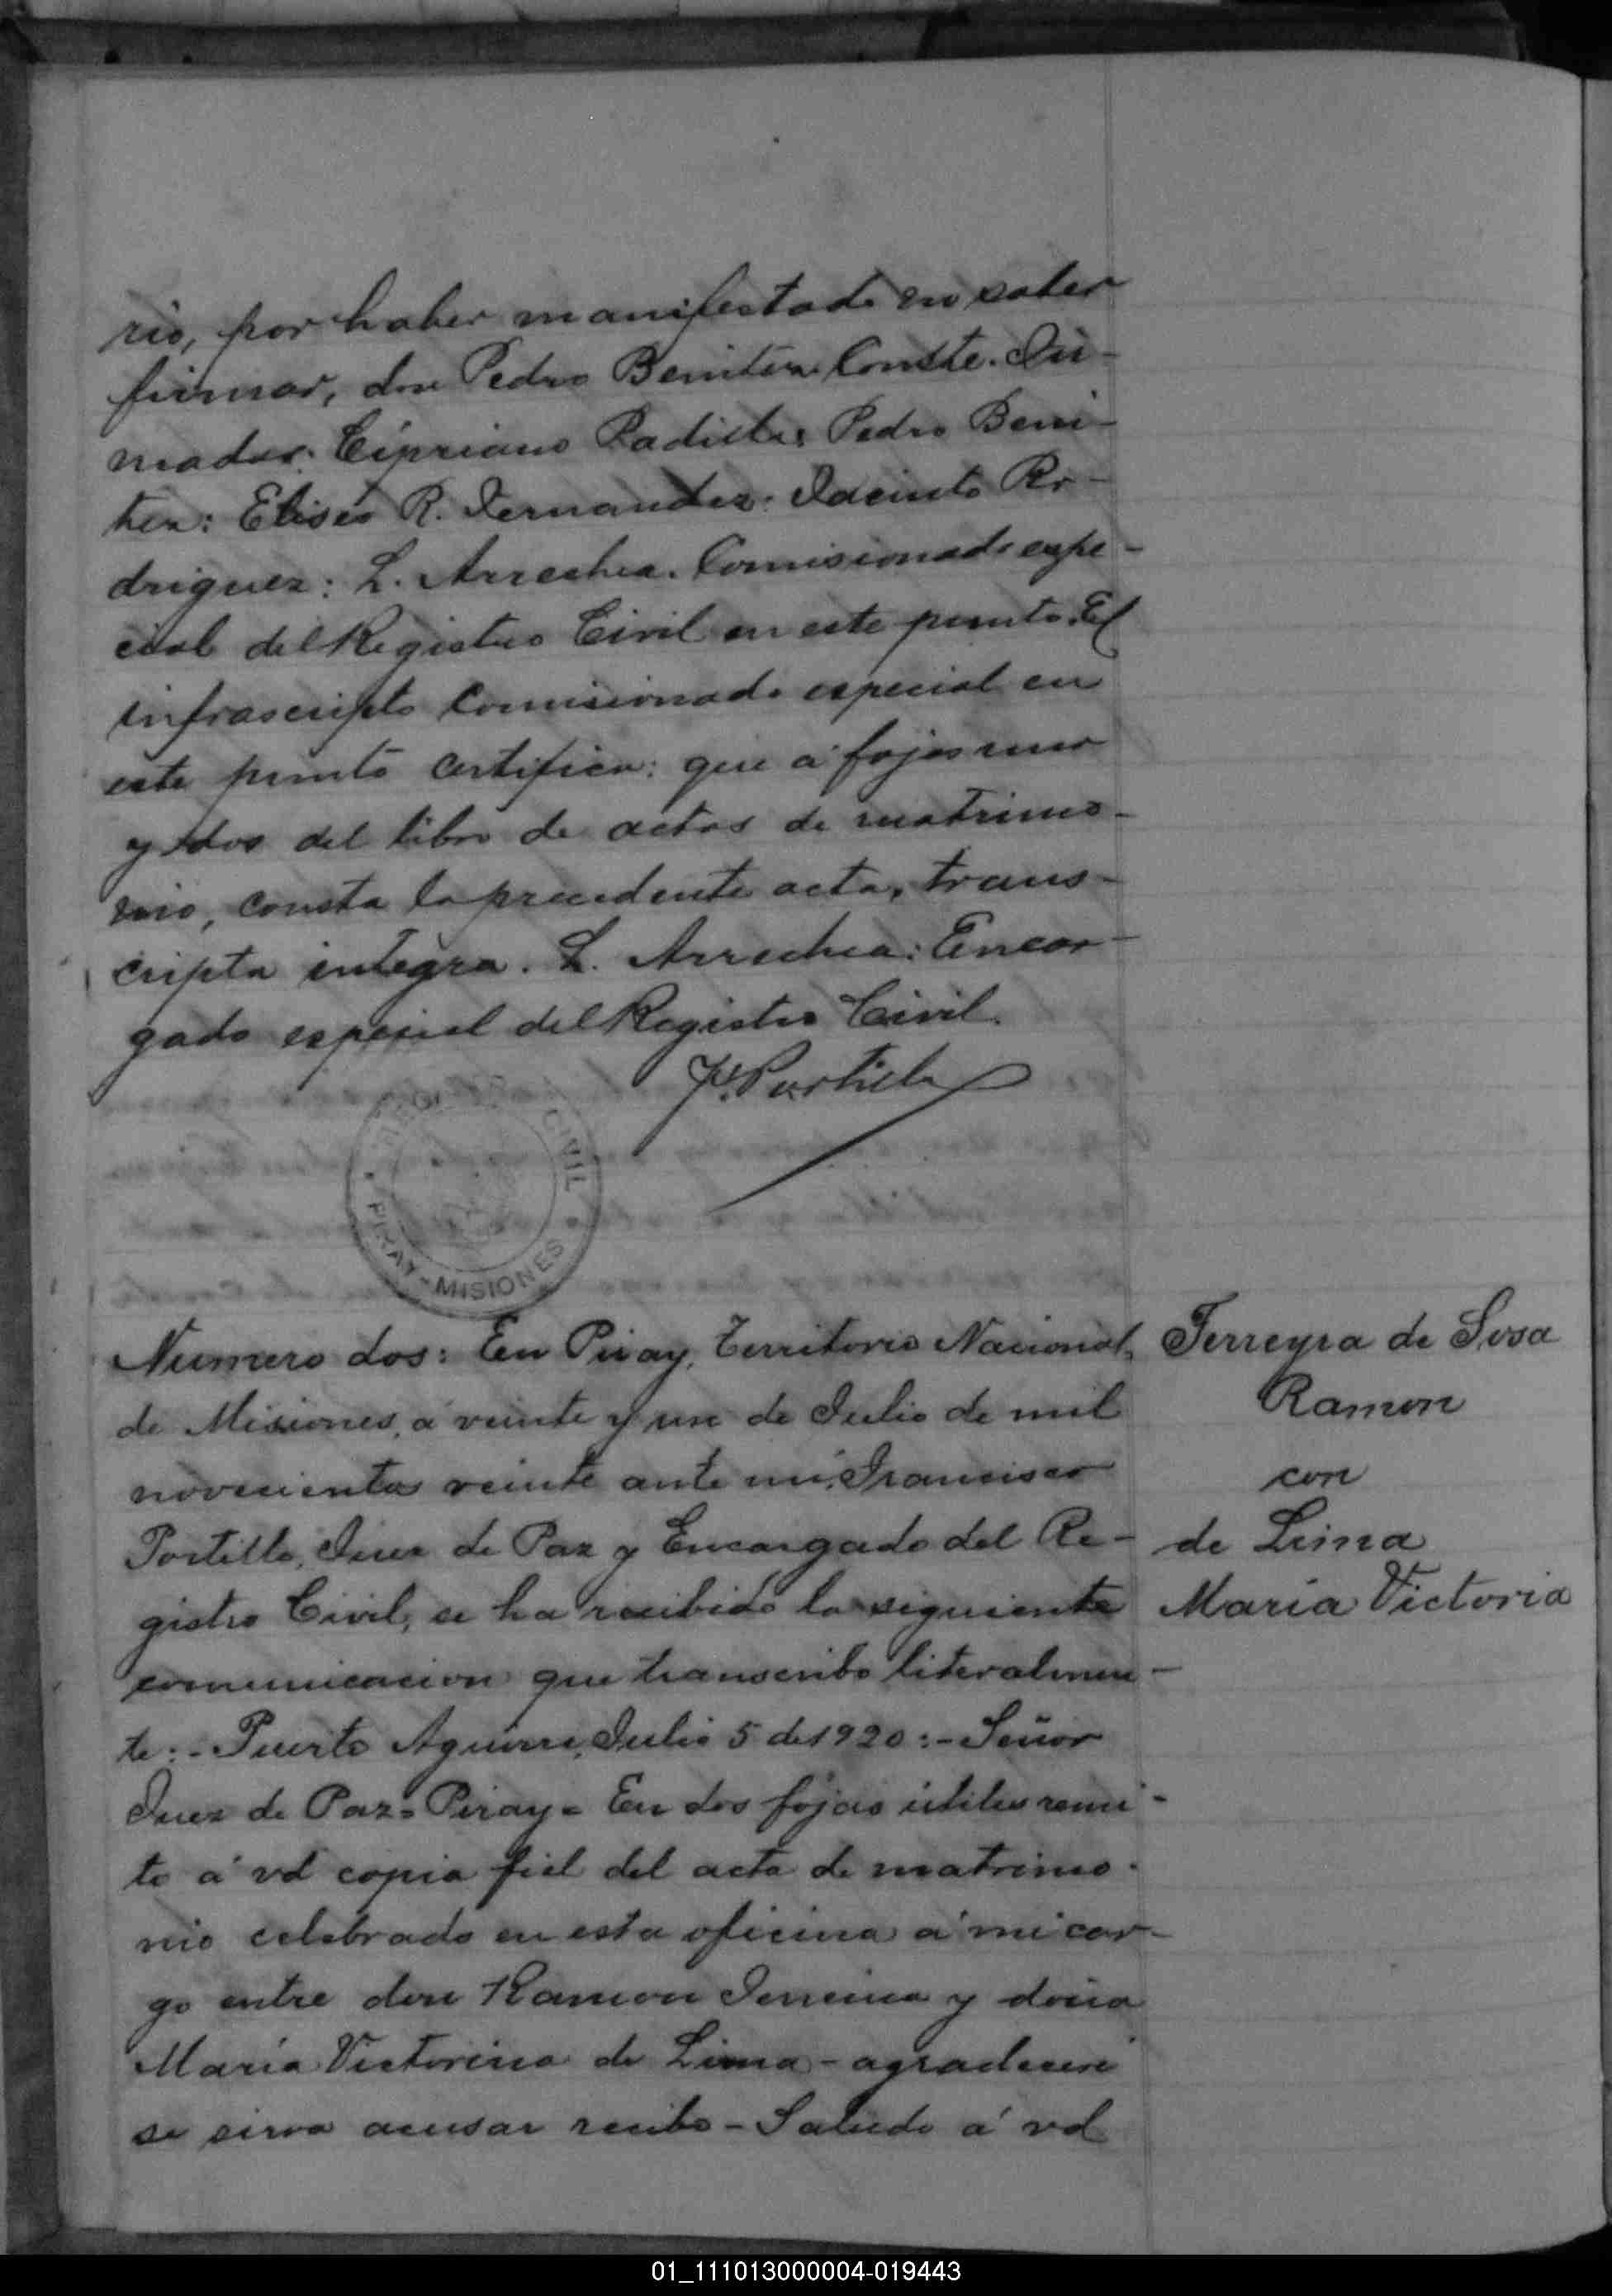 rio, por haber manifestado no saber
firmar, don Pedro Benitez. Conste. Fir-
mados: Cipriano Padilla: Pedro Beni-
tez: Eliseo R. Fernandez: Jacinto Ro-
driguez: L. Arrechea. Comisionado espe-
cial del Registro Civil en este punto. El
infrascripto Comisionado especial en
este punto certifica: que a fojas uno
y dos del libro de actas de matrimo-
nio, consta la precedente acta, trans-
cripta integra. L. Arrechea: Encar-
gado especial del Registro Civil.
F. Portillo
CIVIL
PIRAY-MISIONES
Numero dos: En Piray, Territorio Nacional
de Misiones, á veinte y un de Julio de mil
novecientos veinte ante mi, Francisco
Portillo, Juez de Paz y Encargado del Re-
gistro Civil, se ha recibido la siguiente
comunicacion que transcribo literalmen-
te:- Puerto Aguirre, Julio 5 de 1920:- Señor
Juez de Paz= Piray= En dos fojas utiles remi-
to á vd copia fiel del acta de matrimo-
nio celebrado en esta oficina á mi car-
go entre don Ramon Ferreira y doña
María Victorina de Lima - agradeceré
se sirva acusar recibo - Saludo á vd
Ferreyra de Sosa
Ramon
con
de Lima
María Victoria
01_111013000004-019443